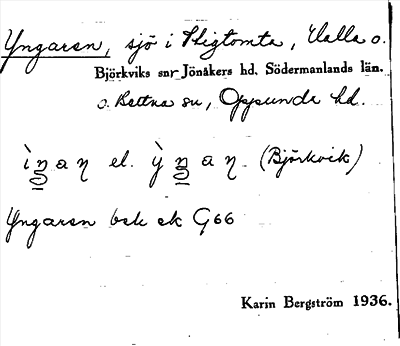 Yngaren, sjö i Stigtomta, Halla o.
Björkviks snr Jönåkers hd. Södermanlands län.
o. Bettna sn, Oppunda hd.
ìŋan el. ỳŋan. (Björkvik)
Yngaren bek ek G66
Karin Bergström 1936.